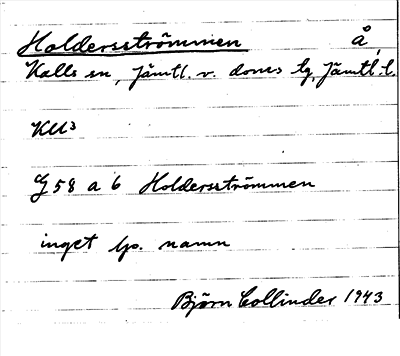 Holdersströmmen å
Kalls sn, Jämtl. v. doms lg, Jämtl. l.
KU3
G 58 a 6 Holdersströmmen
inget lp. namn
Björn Collinder 1943